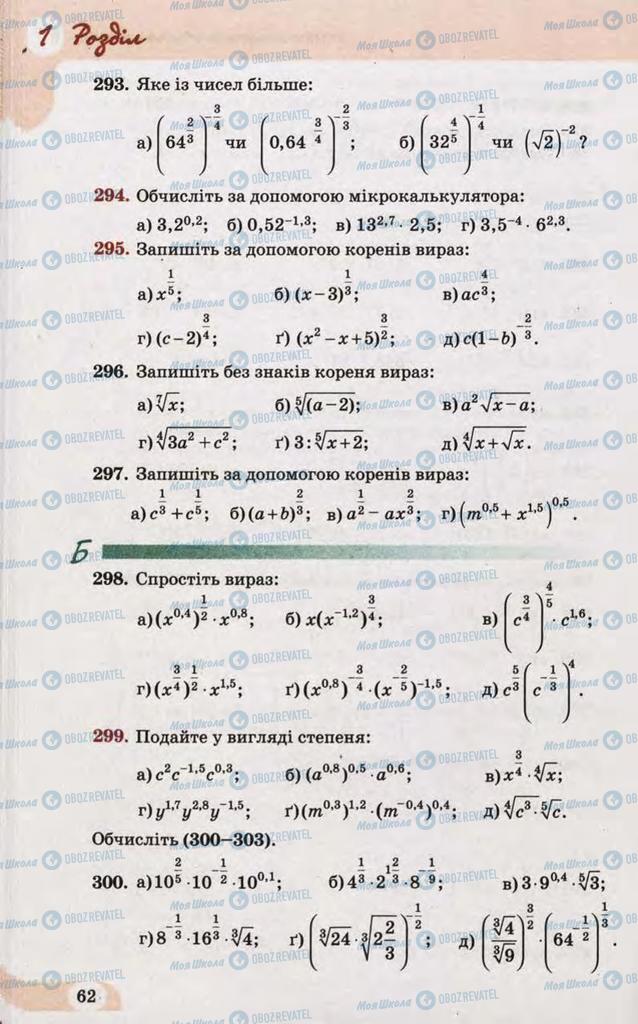 1 Розділ
293. Яке із чисел більше:
а) (64^(2/3))^(3/4) чи (0,64^(3/4))^(-2/3); б) (32^(4/5))^(-1/4) чи (√2)^(-2)?
294. Обчисліть за допомогою мікрокалькулятора:
а) 3,2^(0,2); б) 0,52^(-1,3); в) 13^(2,7) · 2,5; г) 3,5^(-4) · 6^(2,3).
295. Запишіть за допомогою коренів вираз:
а) x^(1/5); б) (x-3)^(1/3); в) ac^(4/3);
г) (c-2)^(3/4); ґ) (x²-x+5)^(3/2); д) c(1-b)^(-2/3).
296. Запишіть без знаків кореня вираз:
а) ⁷√x; б) ⁵√(a-2); в) a²√(x-a);
г) ⁴√(3a²+c²); ґ) 3:⁵√(x+2); д) ⁴√(x+√x).
297. Запишіть за допомогою коренів вираз:
а) c^(1/3)+c^(1/5); б) (a+b)^(2/3); в) a^(1/2) - ax^(2/3); г) (m^(0,5)+x^(1,5))^(0,5).
Б
298. Спростіть вираз:
а) (x^(0,4))^(1/2) · x^(0,8); б) x(x^(-1,2))^(3/4); в) (c^(3/4))^(4/5) · c^(1,6);
г) (x^(3/4))^(1/2) · x^(1,5); ґ) (x^(0,8))^(-3/4) · (x^(-2/5))^(-1,5); д) c^(5/3)(c^(-1/3))^4.
299. Подайте у вигляді степеня:
а) c²c^(-1,5)c^(0,3); б) (a^(0,8))^(0,5) · a^(0,6); в) x^(3/4) · ⁴√x;
г) y^(1,7)y^(2,8)y^(-1,5); ґ) (m^(0,3))^(1,2) · (m^(-0,4))^(0,4); д) ⁴√c³ · ⁵√c.
Обчисліть (300—303).
300. а) 10^(2/5) · 10^(-1/2) · 10^(0,1); б) 4^(1/3) · 2^(1 2/3) · 8^(-1/9); в) 3 · 9^(0,4) · ⁵√3;
г) 8^(-1/3) · 16^(1/3) · ³√4; ґ) (³√24 · ³√(2 2/3))^(-1/2); д) (³√4/³√9)^(3/2) · (64^(-1/2))^(1/3).
62